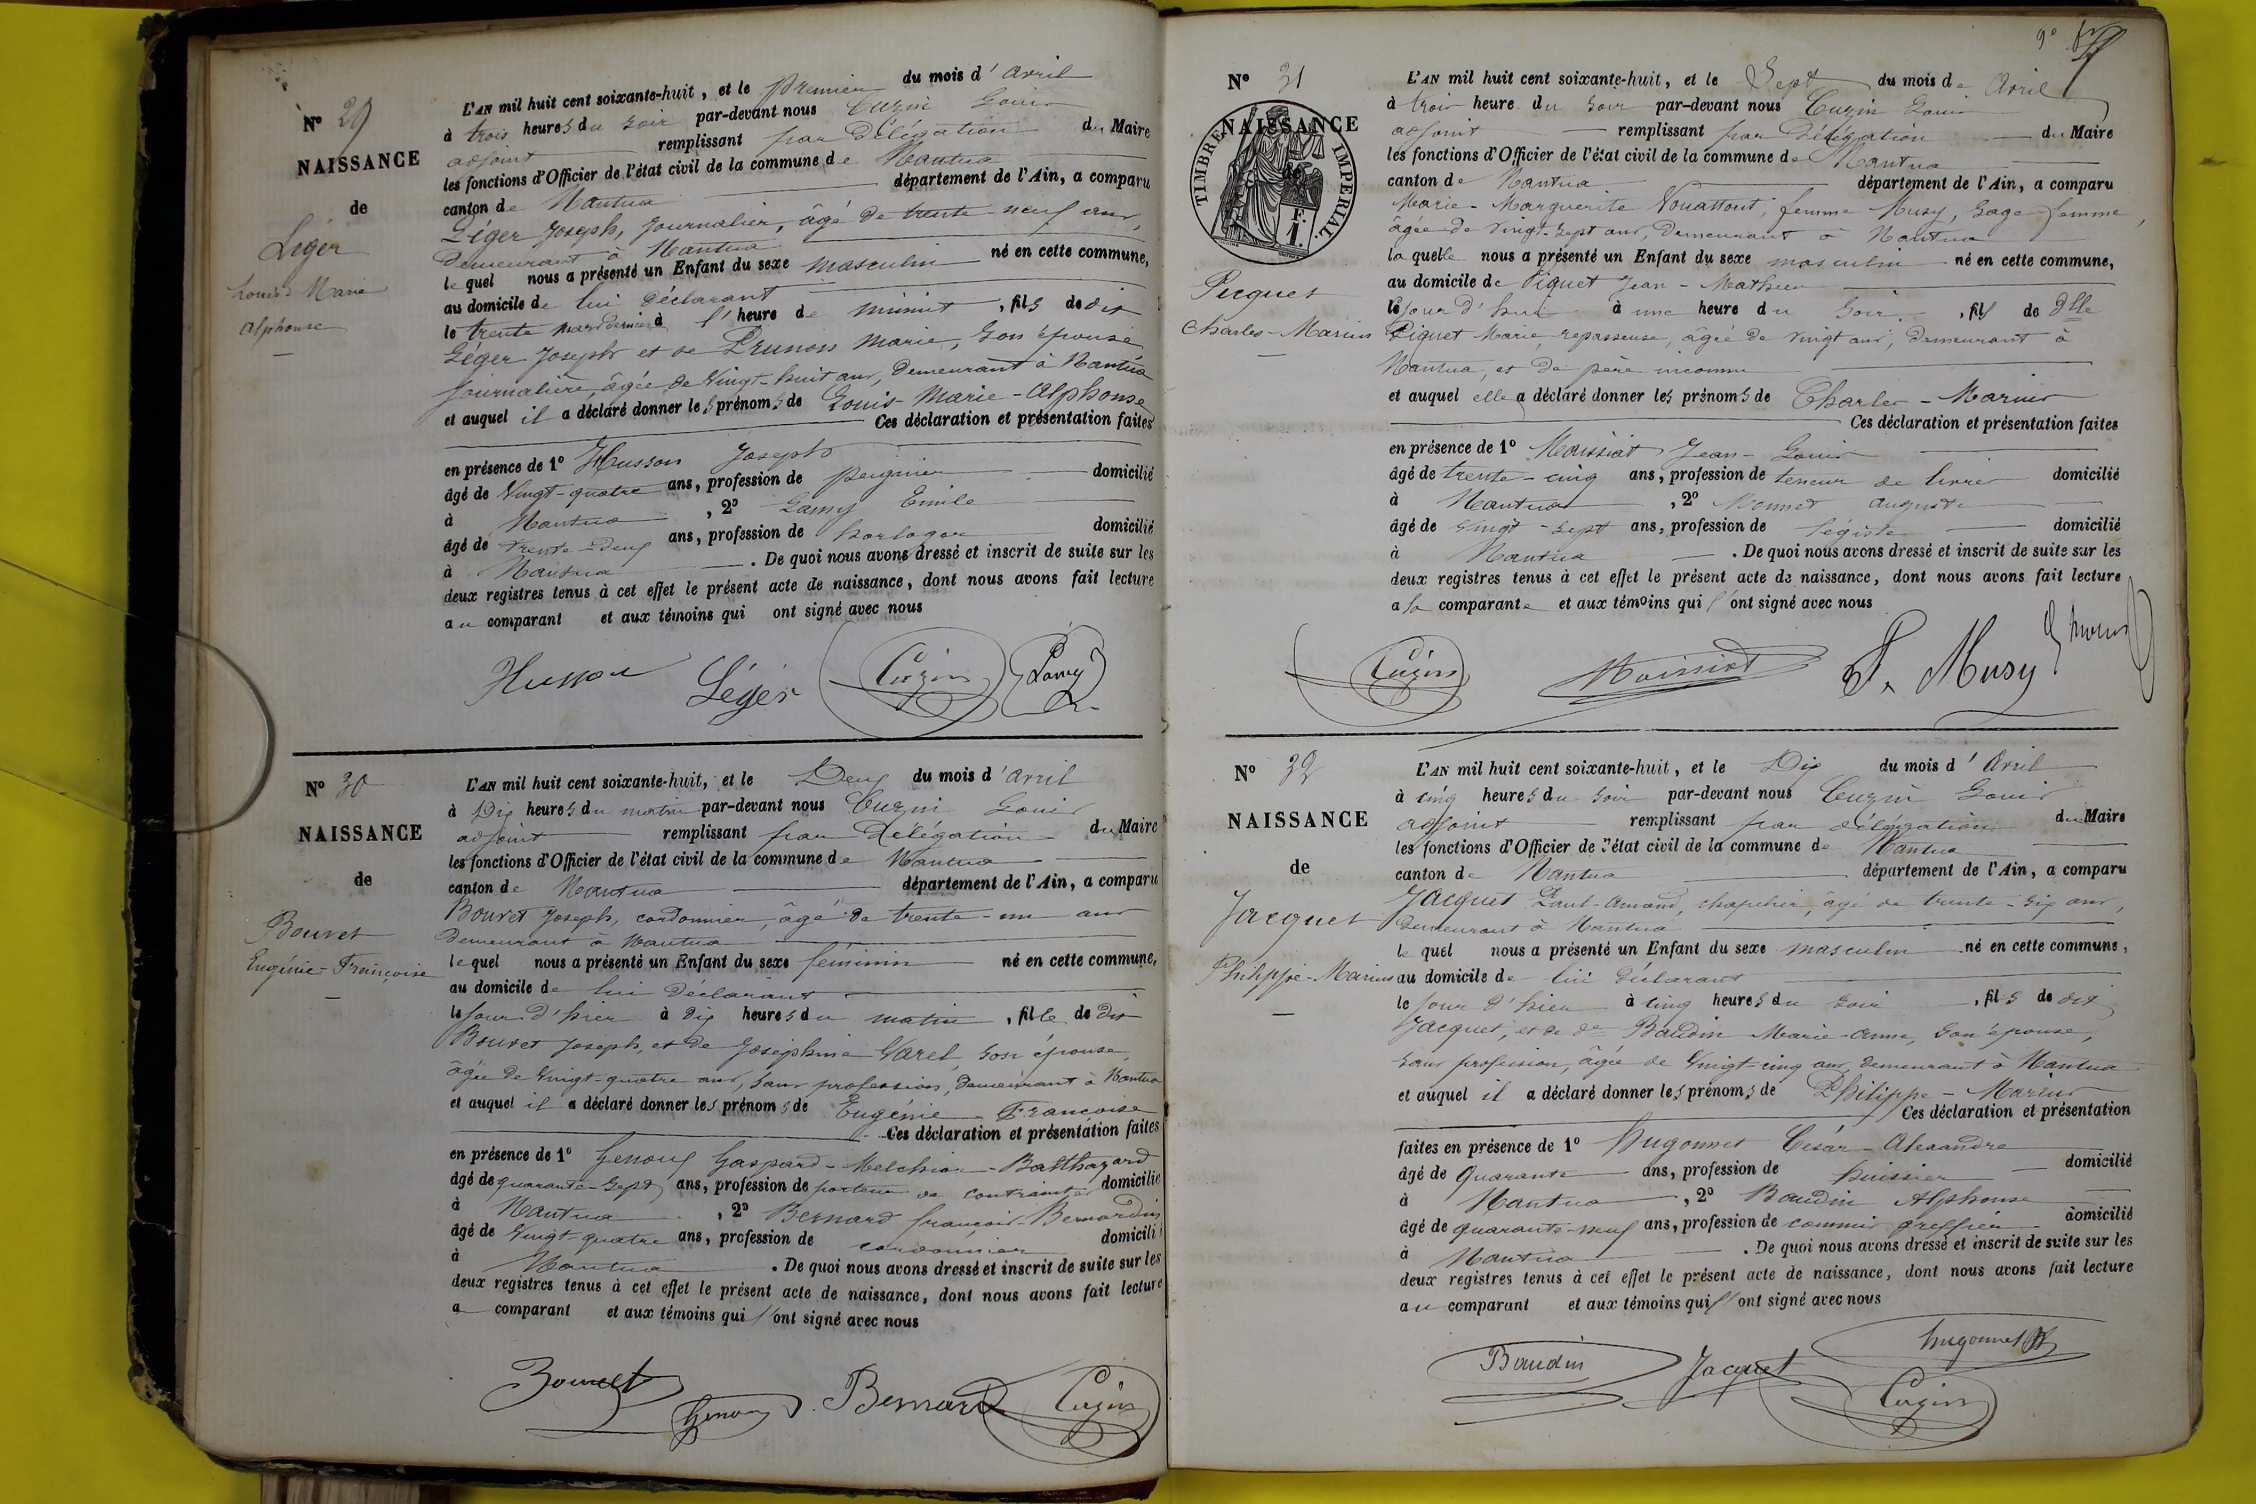 N° 29
NAISSANCE
de
Léger
Louis-Marie
Alphonse
L'AN mil huit cent soixante-huit, et le Premier du mois d'avril
à trois heures du soir par-devant nous Cuzin Louis
adjoint remplissant par Délégation du Maire
les fonctions d'Officier de l'état civil de la commune de Nantua
canton de Nantua département de l'Ain, a comparu
Léger Joseph, Journalier, âgé de trente-neuf ans,
demeurant à Nantua
lequel nous a présenté un Enfant du sexe masculin né en cette commune,
au domicile de lui déclarant
le trente mars dernier à l'heure de minuit, fils de dit
Léger Joseph et de Prunon Marie, son épouse
Journalière, âgée de Vingt-huit ans, demeurant à Nantua
et auquel il a déclaré donner les prénoms de Louis-Marie-Alphonse
Ces déclaration et présentation faites
en présence de 1° Husson Joseph
âgé de Vingt-quatre ans, profession de peignier domicilié
à Nantua, 2° Lamy Emile
âgé de trente-deux ans, profession de horloger domicilié
à Nantua. De quoi nous avons dressé et inscrit de suite sur les
deux registres tenus à cet effet le présent acte de naissance, dont nous avons fait lecture
au comparant et aux témoins qui ont signé avec nous
Husson Léger Cuzin Lamy
N° 30
NAISSANCE
de
Bouvet
Eugénie-Françoise
L'AN mil huit cent soixante-huit, et le Deux du mois d'avril
à Dix heures du matin par-devant nous Cuzin Louis
adjoint remplissant par Délégation du Maire
les fonctions d'Officier de l'état civil de la commune de Nantua
canton de Nantua département de l'Ain, a comparu
Bouvet Joseph, cordonnier, âgé de trente-un ans
demeurant à Nantua
lequel nous a présenté un Enfant du sexe féminin né en cette commune,
au domicile de lui déclarant
le jour d'hier à dix heures du matin, fille de dit
Bouvet Joseph, et de Joséphine Varel, son épouse,
âgée de Vingt-quatre ans, sans profession, demeurant à Nantua
et auquel il a déclaré donner les prénoms de Eugénie-Françoise
Ces déclaration et présentation faites
en présence de 1° Genoux Gaspard-Melchior-Balthazard
âgé de quarante-sept ans, profession de porteur de contraintes domicilié
à Nantua, 2° Bernard françois-Bernardin
âgé de Vingt quatre ans, profession de cordonnier domicilié
à Nantua. De quoi nous avons dressé et inscrit de suite sur les
deux registres tenus à cet effet le présent acte de naissance, dont nous avons fait lecture
a comparant et aux témoins qui l'ont signé avec nous
Bouvet Genoux Bernard Cuzin
9°
N° 31
NAISSANCE
de
TIMBRE IMPERIAL
F.
1.
Picquet
Charles-Marius
L'AN mil huit cent soixante-huit, et le Sept du mois de Avril
à trois heure du soir par-devant nous Cuzin Louis
adjoint remplissant par Délégation du Maire
les fonctions d'Officier de l'état civil de la commune de Nantua
canton de Nantua département de l'Ain, a comparu
Marie-Marguerite, femme Musy, sage-femme,
âgée de vingt-sept ans, demeurant à Nantua
laquelle nous a présenté un Enfant du sexe masculin né en cette commune,
au domicile de Piquet Jean-Mathieu
le jour d'hui à une heure du soir, fils de Dlle
Piquet Marie, repasseuse, âgée de vingt ans, demeurant à
Nantua, et de père inconnu
et auquel elle a déclaré donner les prénoms de Charles-Marius
Ces déclaration et présentation faites
en présence de 1° Moissiat Jean-Louis
âgé de trente-cinq ans, profession de teneur de livres domicilié
à Nantua, 2° Monnet auguste
âgé de vingt-sept ans, profession de légiste domicilié
à Nantua. De quoi nous avons dressé et inscrit de suite sur les
deux registres tenus à cet effet le présent acte de naissance, dont nous avons fait lecture
a la comparante et aux témoins qui l'ont signé avec nous
Cuzin Moissiat F. Musy
N° 32
NAISSANCE
de
Jacquet
Philippe-Marius
L'AN mil huit cent soixante-huit, et le Dix du mois d'Avril
à cinq heures du soir par-devant nous Cuzin Louis
adjoint remplissant par délégation du Maire
les fonctions d'Officier de l'état civil de la commune de Nantua
canton de Nantua département de l'Ain, a comparu
Jacquet Paul-Amand, chapelier, âgé de trente-six ans,
demeurant à Nantua
lequel nous a présenté un Enfant du sexe masculin né en cette commune,
au domicile de lui déclarant
le jour d'hier à cinq heures du soir, fils de dit
Jacquet, et de de Baudin Marie-Anne, son épouse,
sans profession, âgée de Vingt-cinq ans, demeurant à Nantua
et auquel il a déclaré donner les prénoms de Philippe-Marius
Ces déclaration et présentation
faites en présence de 1° Hugonnet César-Alexandre
âgé de quarante ans, profession de huissier domicilié
à Nantua, 2° Baudin Alphonse
âgé de quarante-neuf ans, profession de commis greffier domicilié
à Nantua. De quoi nous avons dressé et inscrit de suite sur les
deux registres tenus à cet effet le présent acte de naissance, dont nous avons fait lecture
au comparant et aux témoins qui l'ont signé avec nous
Baudin Jacquet hugonnet
Cuzin